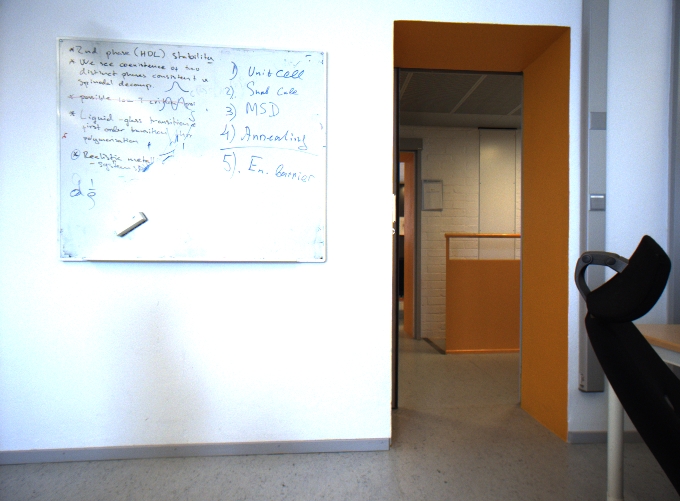 * 2nd phase (HDL) stability
* We see coexistence of two
distinct phases consistent w
Spinodal decomp.
* possible low T critical
* Liquid-glass transition
first order transition
polymerisation
* Realistic metall
system
d 1
1) Unit cell
2)
3) MSD
4) Annealing
5) En. barrier